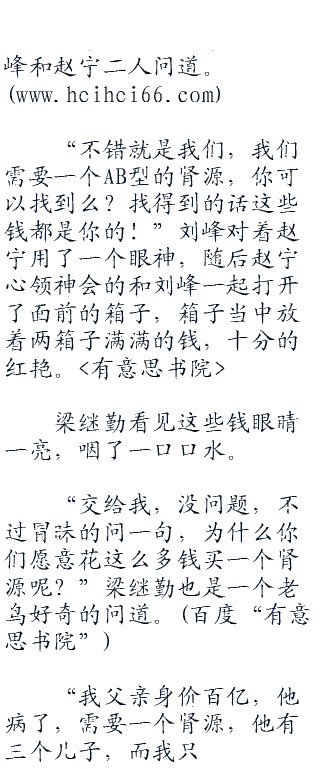 峰和赵宇二人问道。
(www.hcihci66.com)
“不错就是我们，我们
需要一个AB型的肾源，你可
以找到么？找得到的话这些
钱都是你的！”刘峰对着赵
宇用了一个眼神，随后赵宇
心领神会的和刘峰一起打开
了面前的箱子，箱子当中放
着两箱子满满的钱，十分的
红艳。<有意思书院>
梁继勤看见这些钱眼睛
一亮，咽了一口口水。
“交给我，没问题，不
过冒昧的问一句，为什么你
们愿意花这么多钱买一个肾
源呢？”梁继勤也是一个老
鸟好奇的问道。(百度“有意
思书院”)
“我父亲身价百亿，他
病了，需要一个肾源，他有
三个儿子，而我只